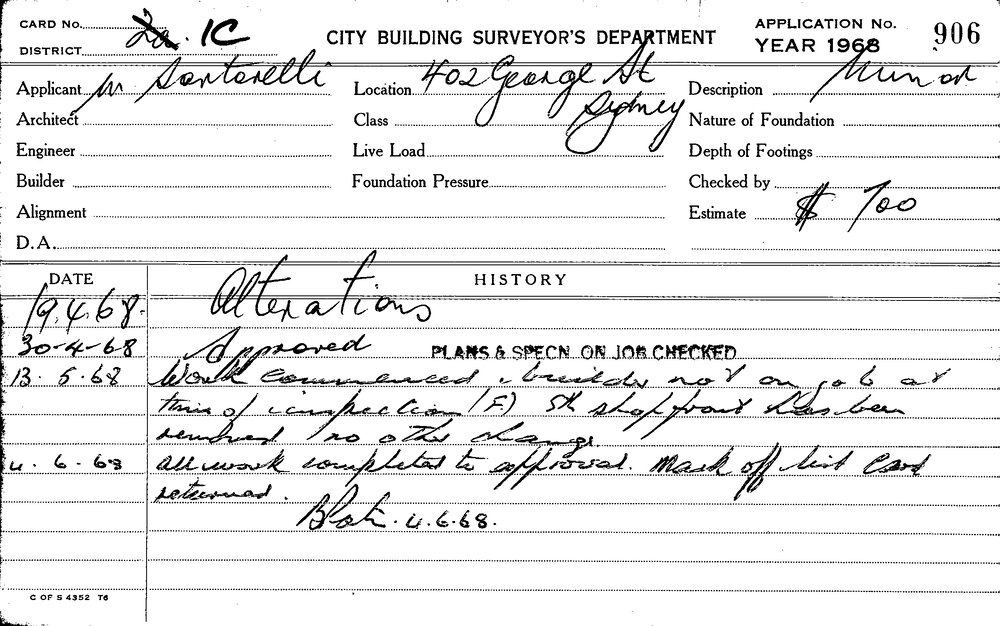 CARD No. 2a. 1C
DISTRICT
CITY BUILDING SURVEYOR'S DEPARTMENT
APPLICATION No. 906
YEAR 1968
Applicant M Sartorelli
Location 402 George St
Sydney
Description Minor
Architect
Class
Nature of Foundation
Engineer
Live Load
Depth of Footings
Builder
Foundation Pressure
Checked by
Alignment
Estimate $ 700
D.A.
DATE
HISTORY
19.4.68. Alterations
30-4-68 Approved PLANS & SPECN ON JOB CHECKED
13. 5. 68 Work commenced, builder not on job at
time of inspection (F.) shopfront has been
removed no other change
4. 6. 68 all work completed to approval. Mark off list Card
returned.
4.6.68.
C OF S 4352 T6